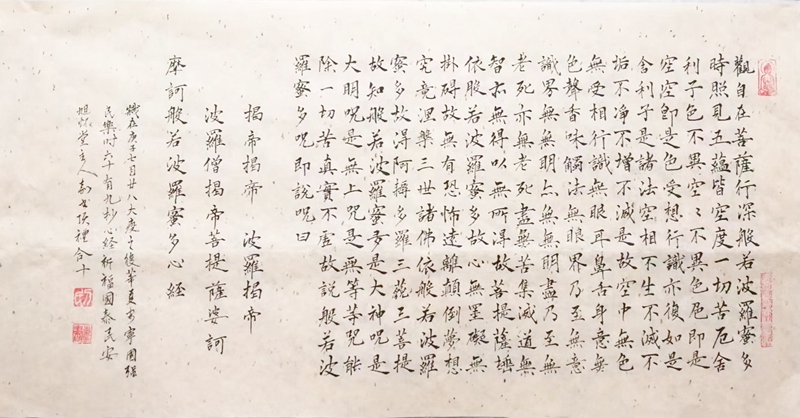 觀自在菩薩行深般若波羅蜜多
時照見五蘊皆空度一切苦厄舍
利子色不異空々不異色色即是
空空即是色受想行識亦復如是
舍利子是諸法空相不生不滅不
垢不淨不增不減是故空中無色
無受想行識無眼耳鼻舌身意無
色聲香味觸法無眼界乃至無意
識界無無明亦無無明盡乃至無
老死亦無老死盡無苦集滅道無
智亦無得以無所得故菩提薩埵
依般若波羅蜜多故心無罣礙無
掛碍故無有恐怖遠離顛倒夢想
究竟涅槃三世諸佛依般若波羅
蜜多故得阿耨多羅三藐三菩提
故知般若波羅蜜多是大神咒是
大明咒是無上咒是無等等咒能
除一切苦真實不虛故說般若波
羅蜜多咒即說咒曰
揭帝揭帝 波羅揭帝
波羅僧揭帝菩提薩婆訶
摩訶般若波羅蜜多心經
時在庚子七月廿八大疫之後華夏安寧國強
民興時六十有九抄心經祈福國泰民安
堂主人 禮合十